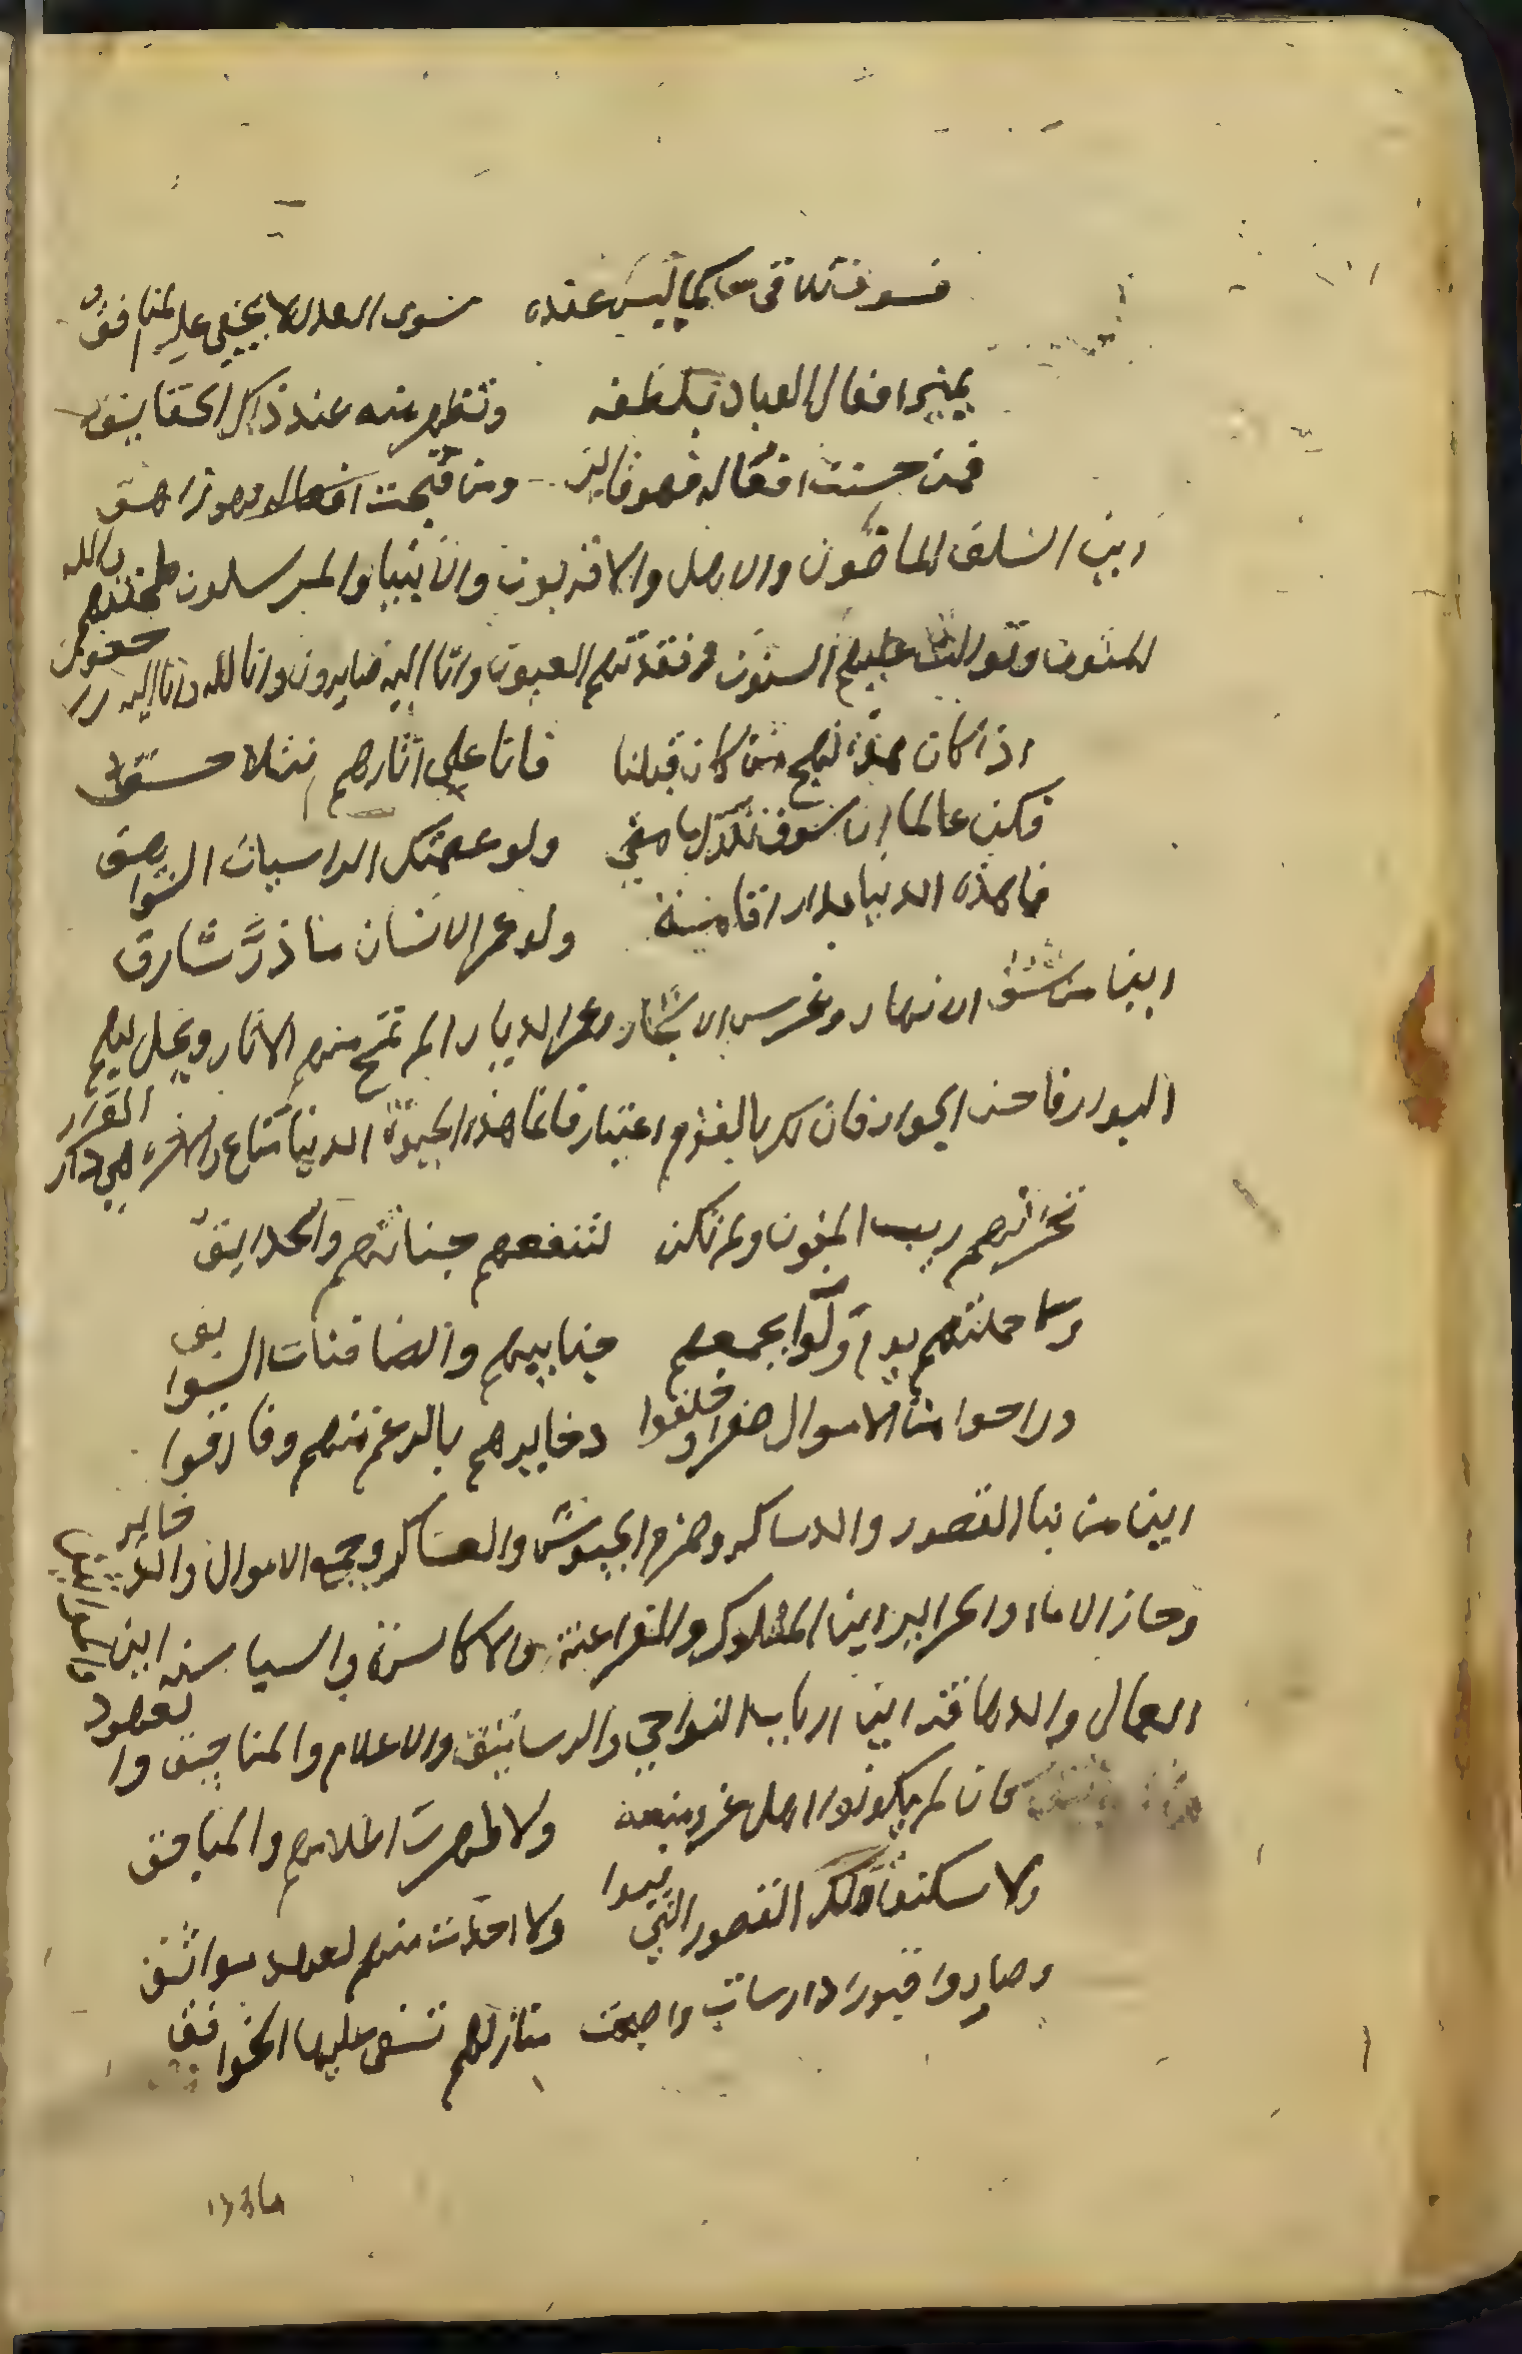 فسوف تلاقى حاكما ليس عنده سوى العدل لا يخفى عليه المنافق
يميز افعال العباد بلطفه وتظهر منه عند ذاك الحقايق
فمن حسنت افعاله فهو فايز ومن قبحت افعاله فهو زاهق
اين السلف الماضون والاهل والاقربون والانبيا والمرسلون طحنتهم والله
المنون وتوالت عليهم السنون وفقدتهم العيون وانا اليه صايرون وانا لله وانا اليه راجعون
اذا كان هذا نهج من كان قبلنا فانا على اثارهم نتلاحق
فكن عالما ان سوف تدرك من مضى ولو عصمتك الراسيات الشواهق
فما هذه الدنيا بدار اقامة ولو عمر الانسان ما ذر شارق
اين من شق الانهار وغرس الاشجار وعمر الديار الم تمح منهم الاثار ويحل بهم
البوار فاخش الجوار فان لك بالقوم اعتبار فانما هذه الحيوة الدنيا متاع والاخرة هي دار القرار
تخرمهم ريب المنون ولم تكن لتنفعهم جناتهم والحدايق
وما حملتهم يوم ولوا بجمعهم جنايبهم والصافنات السوابق
وراحوا من الاموال صفرا وخلفوا دخايرهم بالرغم منهم وفارقوا
اين من بنا القصور والدساكر وهزم الجيوش والعساكر وجمع الاموال والدخاير
وحاز الاماء والحراير اين الملوك والفراعنة والاكاسرة والسياسنه اين
العمال والدهاقنه اين ارباب النواحي والرساتيق والاعلام والمناجيق والعهود
كان لم يكونوا اهل عز ومنعه ولا ظهرت اعلامهم والمناجق
ولا سكنوا تلك القصور التي بنوا ولا اخذت منهم لعهد مواثق
وصاروا قبورا دارسات واصبحت منازلهم تسفى عليها الخوافق